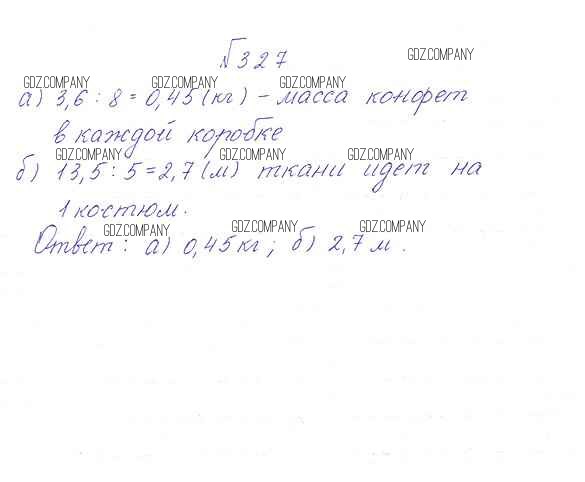 №327
GDZ.COMPANY
GDZ.COMPANY GDZ.COMPANY GDZ.COMPANY
а) 3,6 : 8 = 0,45 (кг) – масса конфет
в каждой коробке
GDZ.COMPANY GDZ.COMPANY GDZ.COMPANY
б) 13,5 : 5 = 2,7 (м) ткани идет на
1 костюм.
GDZ.COMPANY GDZ.COMPANY GDZ.COMPANY
Ответ: а) 0,45 кг; б) 2,7 м.